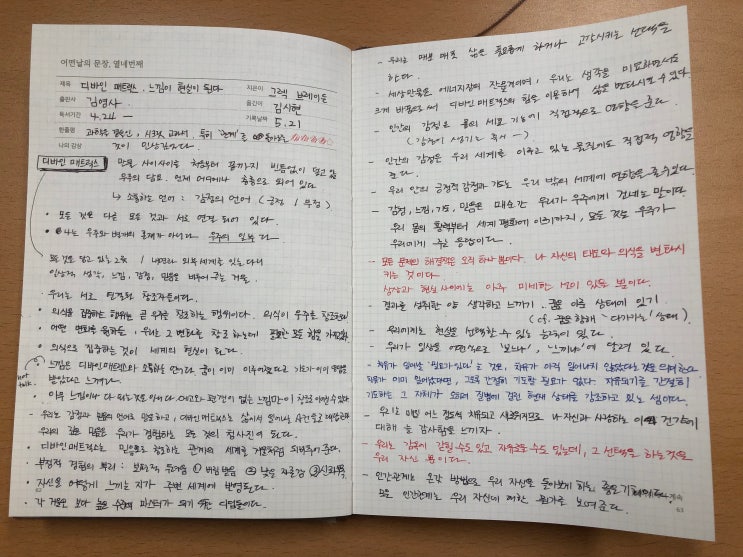 어떤날의 문장, 열네번째
제목 디바인 매트릭스, 느낌이 현실이 된다 지은이 그렉 브레이든
출판사 김영사 옮긴이 김시현
독서기간 4.24 — 기록날짜 5.21
한줄평 과학적
나의 감상 것이 인상깊었다.
디바인 매트릭스 만물 사이사이를 처음부터 끝까지 빈틈없이 덮고 있는
우주의 담요. 언제 어디에나 층층으로 되어 있다
↳ 소통하는 언어 : 감정의 언어 (긍정 / 부정)
• 모든 것은 다른 모든 것과 서로 연결되어 있다.
• 나는 우주와 별개의 존재가 아니다. 우주의 일부다
모든 것을 담고 있는 그릇 / 내면과 외부세계를 잇는 다리
일상적 생각, 느낌, 감정, 믿음을 비추어 주는 거울.
• 우리는 서로 연결된 창조자들이다.
• 의식을 집중하는 행위는 곧 우주를 창조하는 행위이다. 의식이 우주를 창조한다!
• 어떤 변화를 원하든, 우리는 그 변화를 창조하는데 필요한 모든 힘을 가지고있다.
• 의식으로 집중하는 것이 세계의 현실이 된다.
• 느낌은 디바인매트릭스와 소통하는 언어다. 꿈이 이미 이루어졌다고 기도가 이미 응답을
받았다고 느껴라.
• 아무 느낌이나 다 되는 것은 아니다. 에고와 편견이 없는 느낌만이 창조할 수 있다
- 우리는 감정과 믿음의 언어로 말하고, 디바인매트릭스는 삶에서 일어나는 사건으로 대답한다
우리의 믿음은 우리가 경험하는 모든 것의 청사진이 된다.
• 디바인매트릭스는 믿음으로 창조하는 관계의 세계를 거울처럼 되비추어준다.
• 부정적 경험의 뿌리 : 보편적 두려움 ① 버림받음 ② 낮은 자존감 ③
• 자신을 어떻게 느끼는지가 주변 세계에 반영된다.
• 각 거울은 보다 높은 수준의 마스터가 되기 위한 디딤돌이다.
- 우리는 매분 매초 삶을 풍요롭게 하거나 고갈시키는 선택을
한다.
- 세상만물은 에너지장의 작용결과이며, 우리는 생각을 미묘하면서도
크게 바꿈으로써 디바인 매트릭스의 힘을 이용하여 삶을 변화시킬 수 있다
- 인간의 감정은 몸의 세포 기능에 직접적으로 영향을 준다.
- 인간의 감정은 우리 세계를 이루고 있는 물질에도 직접적 영향을
준다.
- 우리 안의 긍정적 감정과 기도는 우리 밖의 세계에 영향을 줄 수 있다.
- 감정, 느낌, 기도, 믿음은 매순간 우리가 우주에게 건네는 말이다.
우리 몸의 활력부터 세계 평화에 이르기까지, 모든 것은 우주가
우리에게 주는 응답이다.
- 모든 문제의 해결책은 오직 하나 뿐이다. 나 자신의 태도와 의식을 변화시
키는 것이다.
상상과 현실 사이에는 아주 미세한 선이 있을 뿐이다.
- 결과를 성취한 양 생각하고 느끼기. 꿈을 이룬 상태에 있기
(cf. 꿈을 향해 '다가가는' 상태)
- 우리에게는 현실을 선택할 수 있는 능력이 있다.
- 우리가 일상을 어떤식으로 '보느냐', '느끼냐'에 달려 있다.
- 치유가 일어날 '필요가 있다'는 것은, 치유가 아직 일어나지 않았다는 것을 의미한다.
치유가 이미 일어났다면, 그토록 간절히 기도할 필요가 없다. 치유되기를 간절히
기도하는 그 자체가 오히려 질병에 걸린 현재 상태를 강조하고 있는 셈이다.
대해 늘 감사함을 느끼자.
- 우리는 감옥에 갇힐 수도 있고 자유로울 수도 있는데, 그 선택을 하는 것은
우리 자신의 몫이다.
- 인간관계는 온갖 방법으로 우리 자신을 돌아보게 하는 좋은 기회이다.
모든 인간관계는 우리 자신에 대한 뭔가를 보여준다.
63